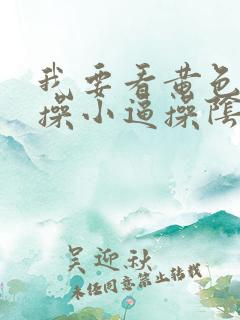 我要看黄色
操小逼操陰
吴迎秋
未经同意禁止转载